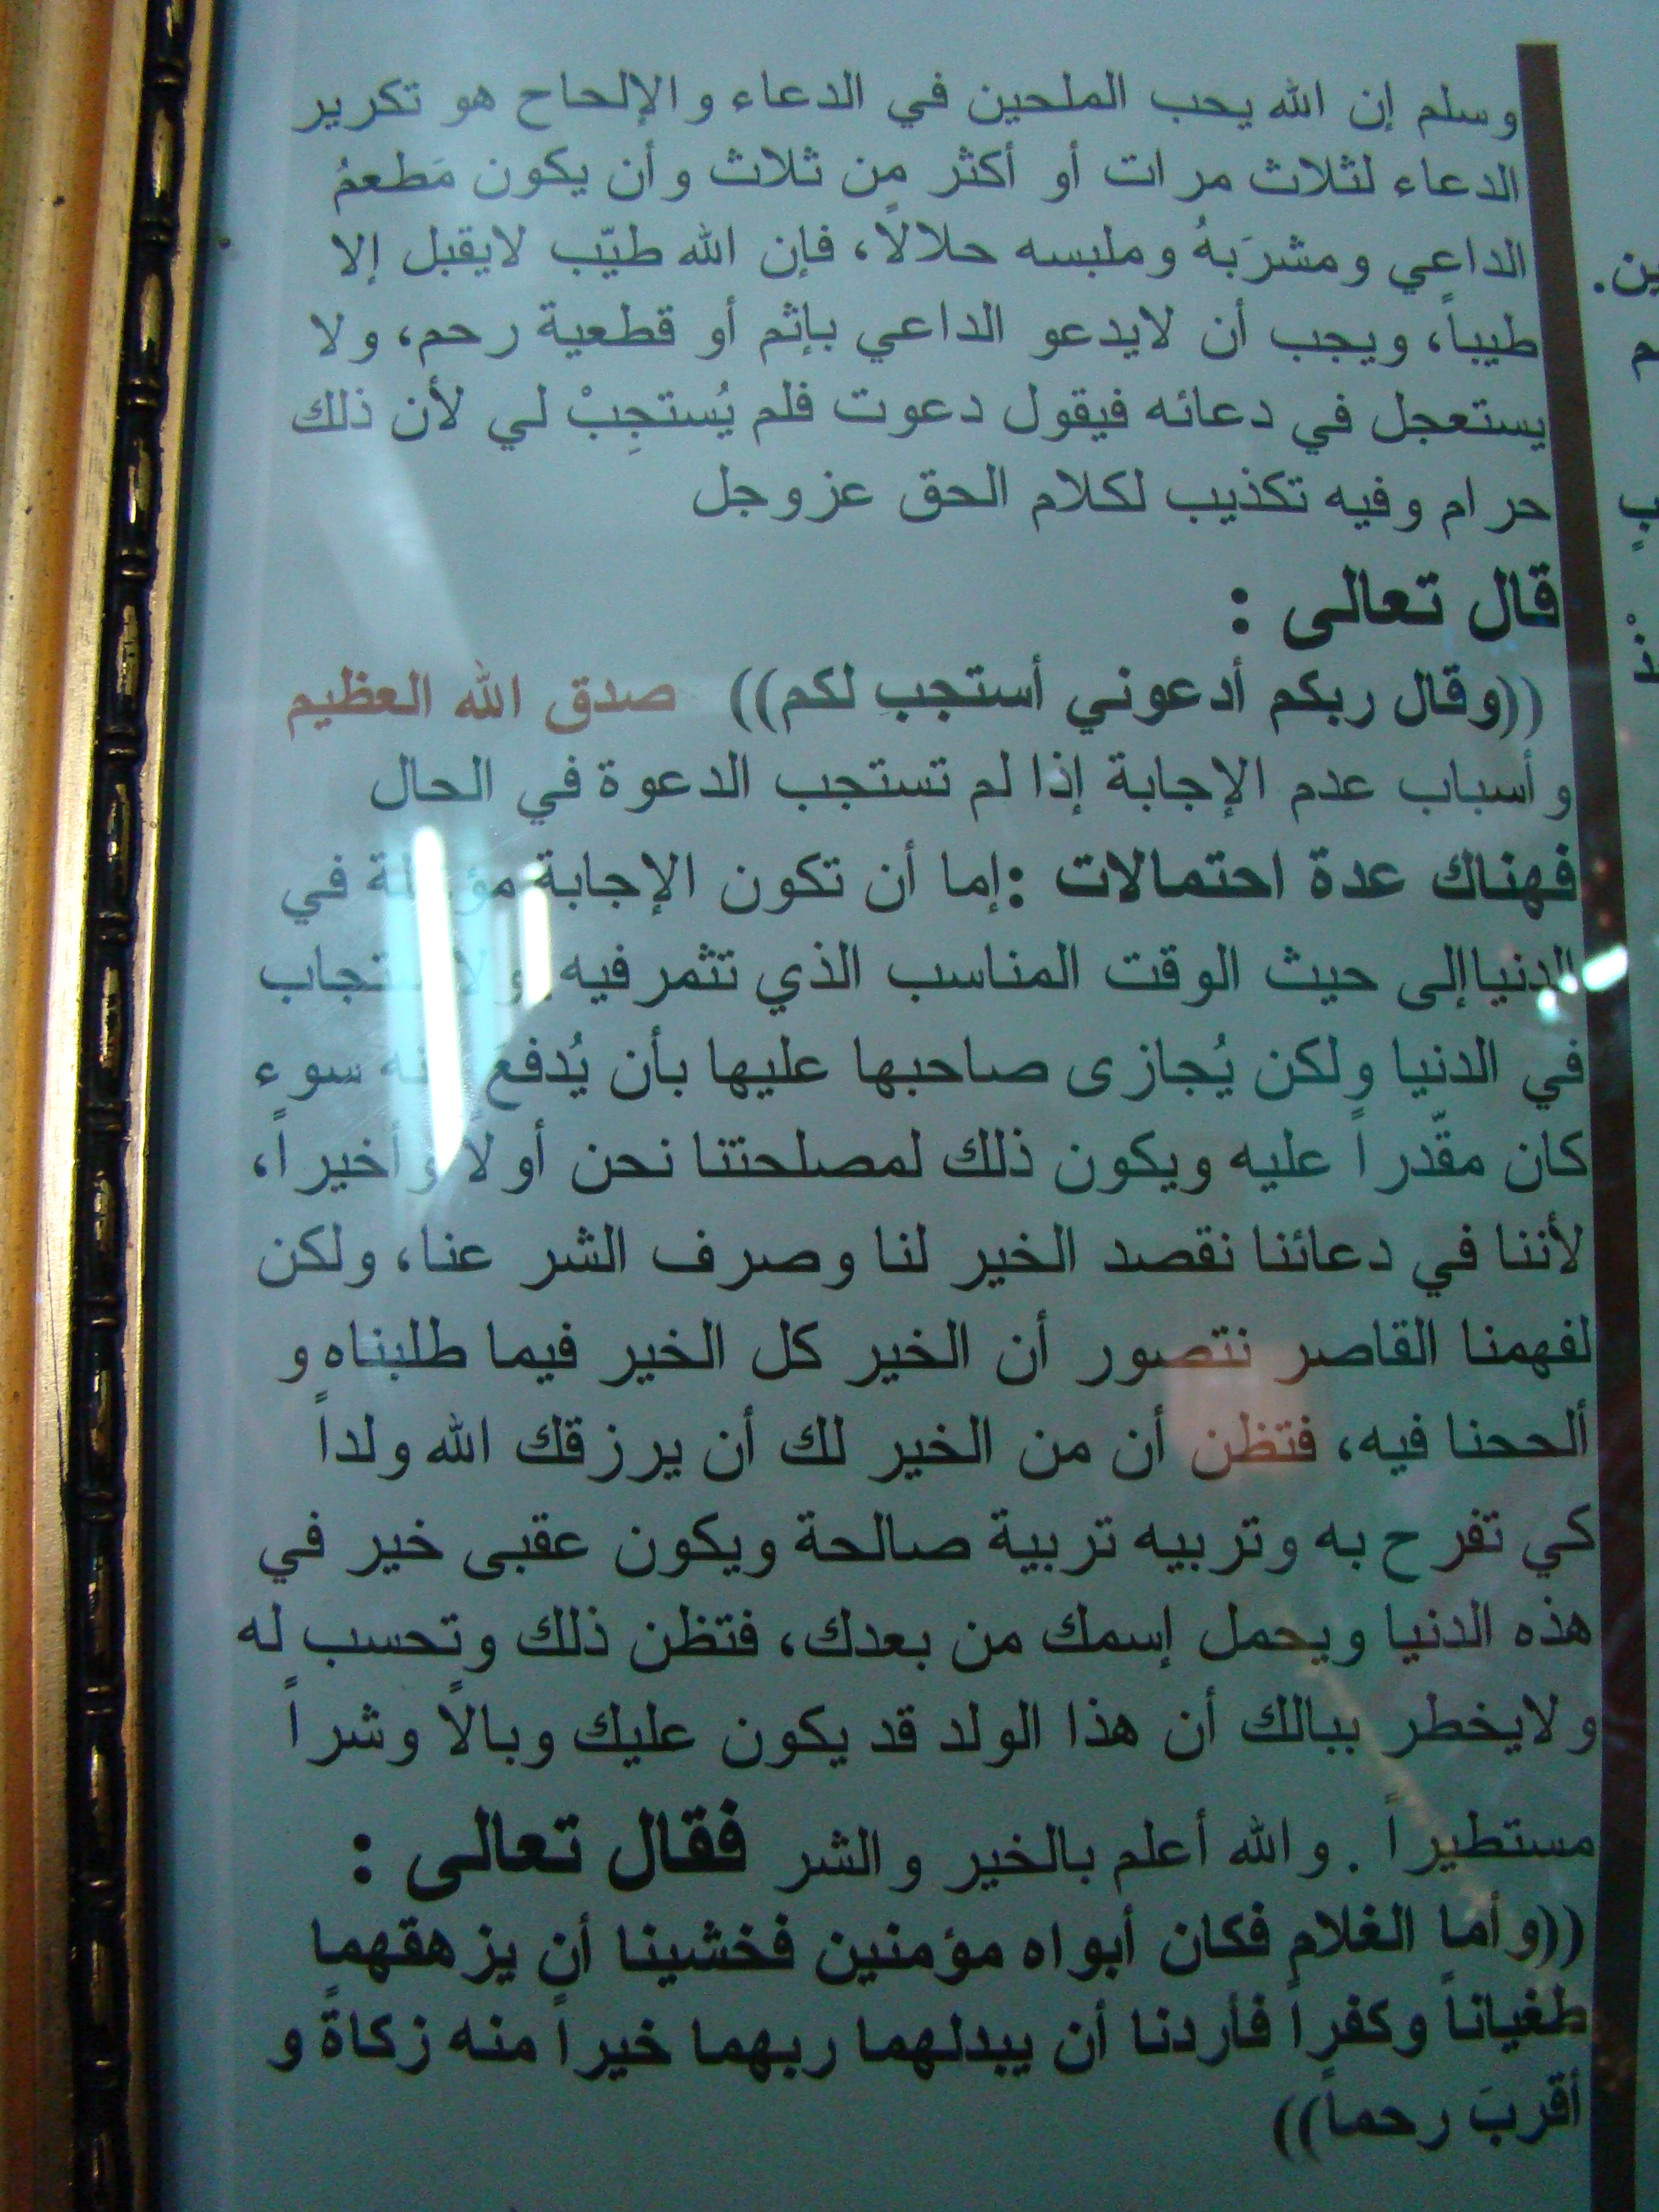 وسلم إن الله يحب الملحين في الدعاء والإلحاح هو تكرير
الدعاء لثلاث مرات أو أكثر من ثلاث وأن يكون مَطعمُ
الداعي ومشرَبهُ وملبسه حلالاً، فإن الله طيّب لايقبل إلا
طيباً، ويجب أن لايدعو الداعي بإثم أو قطعية رحم، ولا
يستعجل في دعائه فيقول دعوت فلم يُستجِبْ لي لأن ذلك
حرام وفيه تكذيب لكلام الحق عزوجل
قال تعالى :
((وقال ربكم أدعوني أستجب لكم)) صدق الله العظيم
وأسباب عدم الإجابة إذا لم تستجب الدعوة في الحال
فهناك عدة احتمالات :إما أن تكون الإجابة في
الدنياإلى حيث الوقت المناسب الذي تثمر فيه
في الدنيا ولكن يُجازى صاحبها عليها بأن يُدفع سوء
كان مقّدراً عليه ويكون ذلك لمصلحتنا نحن أولاً وأخيراً،
لأننا في دعائنا نقصد الخير لنا وصرف الشر عنا، ولكن
لفهمنا القاصر نتصور أن الخير كل الخير فيما طلبناه و
ألححنا فيه، فتظن أن من الخير لك أن يرزقك الله ولداً
كي تفرح به وتربيه تربية صالحة ويكون عقبى خير في
هذه الدنيا ويحمل إسمك من بعدك، فتظن ذلك وتحسب له
ولايخطر ببالك أن هذا الولد قد يكون عليك وبالاً وشراً
مستطيراً . والله أعلم بالخير والشر فقال تعالى :
((وأما الغلام فكان أبواه مؤمنين فخشينا أن يزهقهما
طغياناً وكفراً فأردنا أن يبدلهما ربهما خيراً منه زكاةً و
أقربَ رحماً))